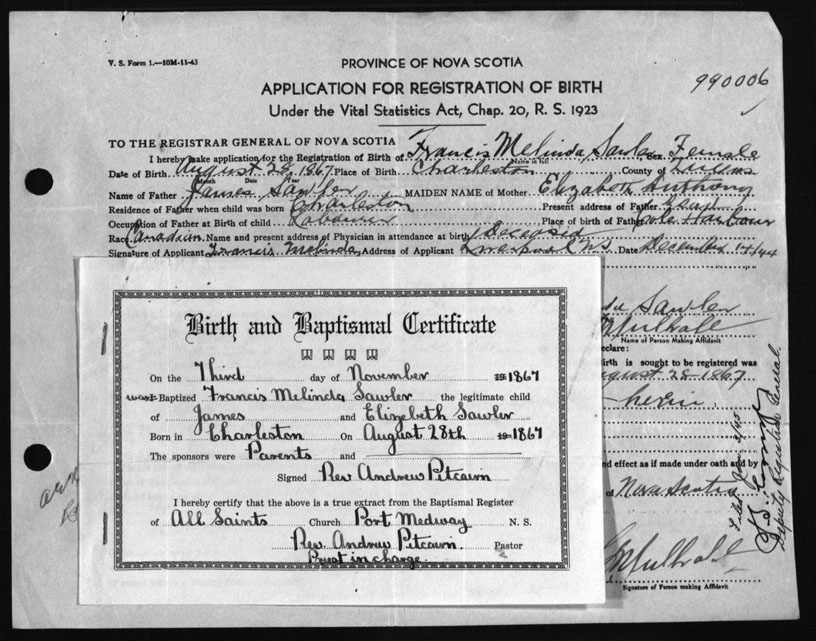 V. S. Form 1.—10M-11-43
PROVINCE OF NOVA SCOTIA
990006
APPLICATION FOR REGISTRATION OF BIRTH
Under the Vital Statistics Act, Chap. 20, R. S. 1923
TO THE REGISTRAR GENERAL OF NOVA SCOTIA
I hereby make application for the Registration of Birth of Francis Melinda Sawler Sex Female
Name in full
Date of Birth August 28 1867 Place of Birth Charleston County of
Month Date Year
Name of Father James Sawler MAIDEN NAME of Mother Elizabeth Anthony
Residence of Father when child was born Charleston Present address of Father Dead
Occupation of Father at Birth of child Labourer Place of birth of Father Cole Harbour
Race Canadian Name and present address of Physician in attendance at birth Deceased
Signature of Applicant Francis Melinda Address of Applicant Liverpool N.S. Date December 14/44
Birth and Baptismal Certificate
On the Third day of November 19 1867
was Baptized Francis Melinda Sawler the legitimate child
of James and Elizebeth Sawler
Born in Charleston On August 28th 19 1867
The sponsors were Parents and
Signed Rev Andrew Pitcairn
I hereby certify that the above is a true extract from the Baptismal Register
of All Saints Church Port Medway N. S.
Rev. Andrew Pitcairn Pastor
Priest in charge
Sawler
Mulhall
Name of Person Making Affidavit
eclare:
irth is sought to be registered was
ugust 28-1867
herin
nd effect as if made under oath and by
of Nova Scotia
Mulhall
Signature of Person making Affidavit
Deputy Registrar General